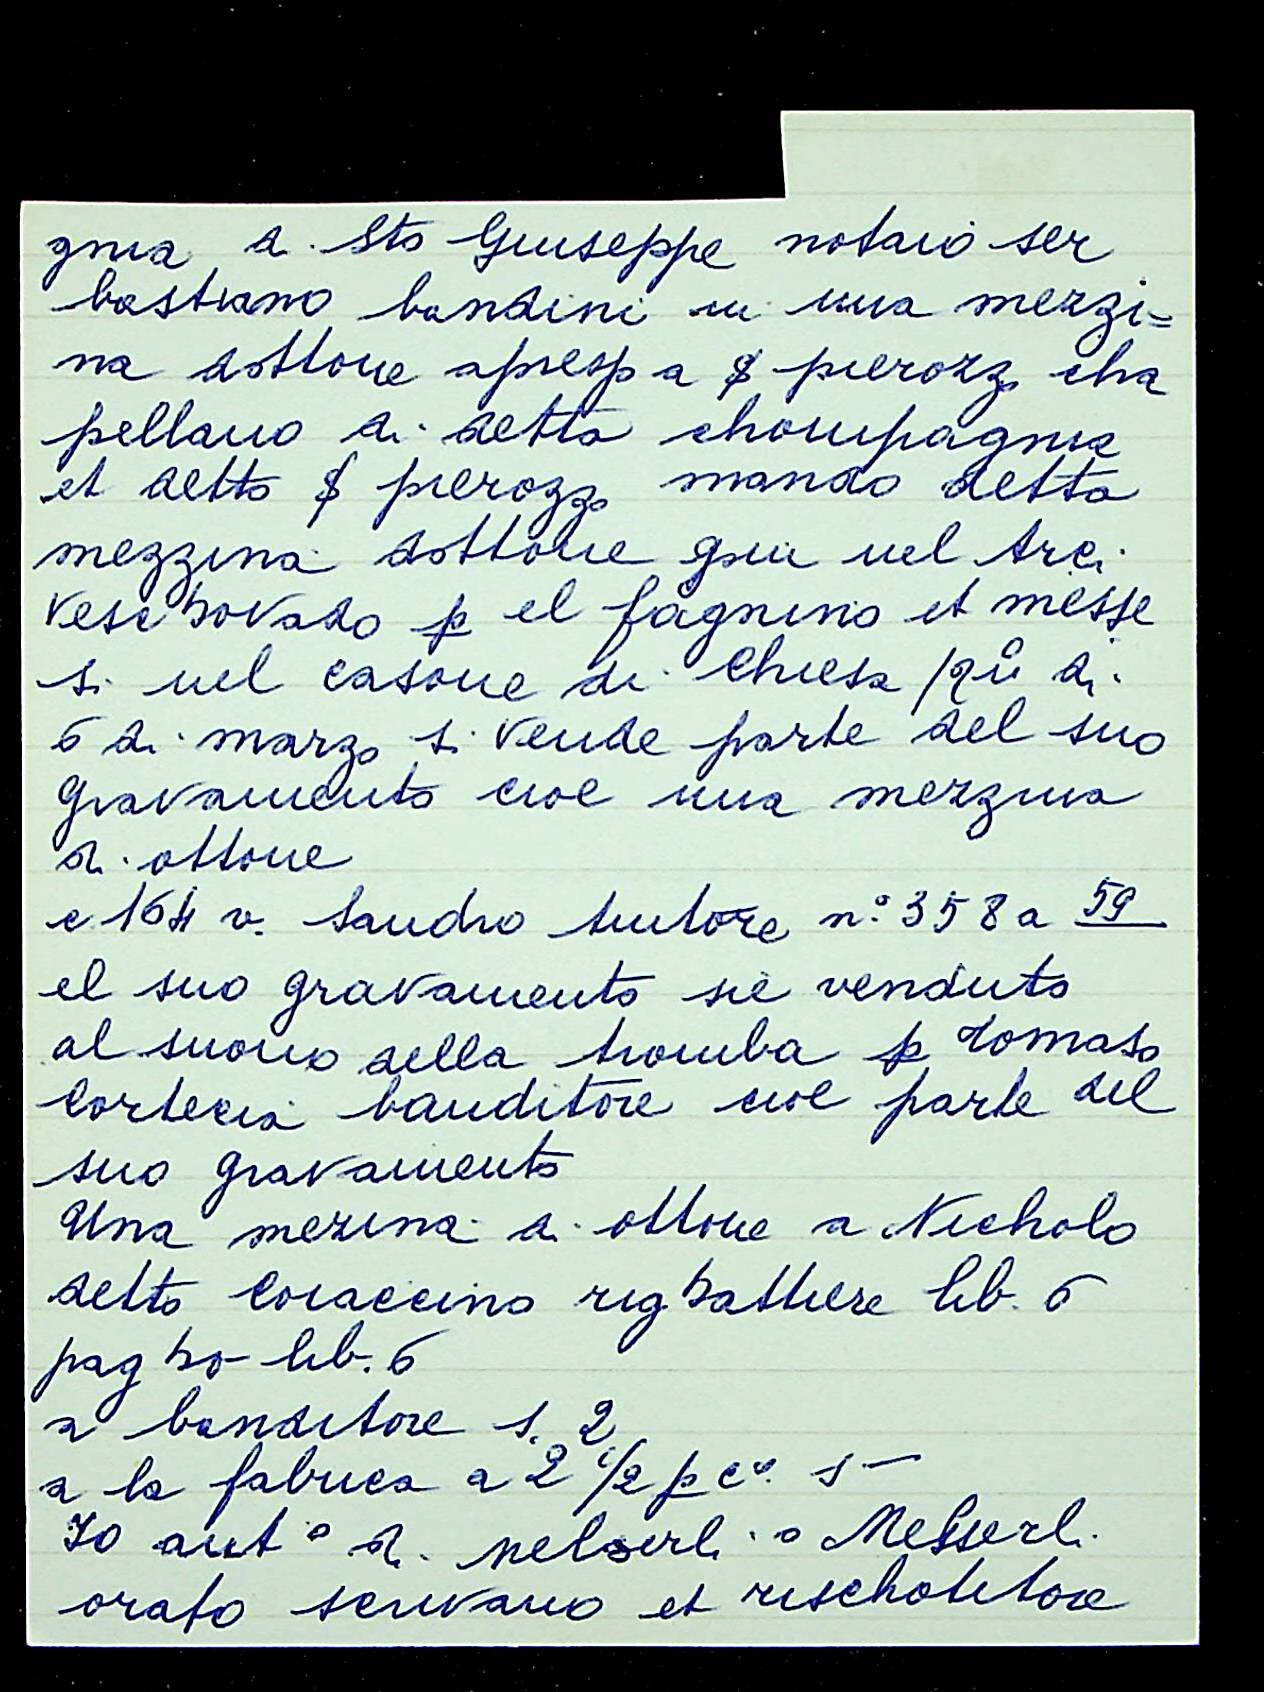 gnia di Sto Giuseppe notaio ser
bastiano bandini in una mezzi=
na dottone apresso a $ pierozzo cha
pellano di detta chompagnia
et detto $ pierozzo mando detta
mezzina dottone qui nel Arci
veschovado p el fagnino et messe
si nel casone di Chiesa / qui di
6 di marzo si vende parte del suo
gravamento cioe una mezzina
di ottone
c 164 v. Sandro tintore n.° 358 a 59
el suo gravamento sie venduto
al suono della tromba p tomaso
Cortecia banditore cioe parte del
suo gravamento
Una mezina di ottone a Nicholo
detto Coraccino righattiere lib. 6
pagho lib. 6
a banditore s. 2
a la fabrica a 2 1/2 p co. s —
Io ant° di Messerl.
orato scrivano et rischotitore